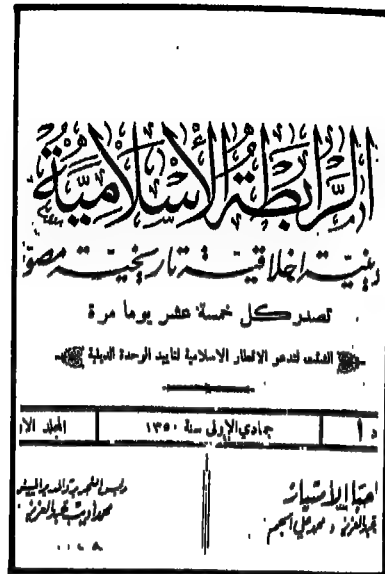 الرابطة الإسلامية
دينية اخلاقية تاريخية مصو
تصدر كل خمسة عشر يوما مرة
انشئت لتدعو الاقطار الاسلامية لتاييد الوحدة الدينية
جمادي الاولى سنة ١٣٥٠
المجلد الاو
صاحبا الامتياز
عبدالعزيز و محمد علي النجم
رئيس التحرير والمدير المسئو
محمد اديب عبدالعزيز